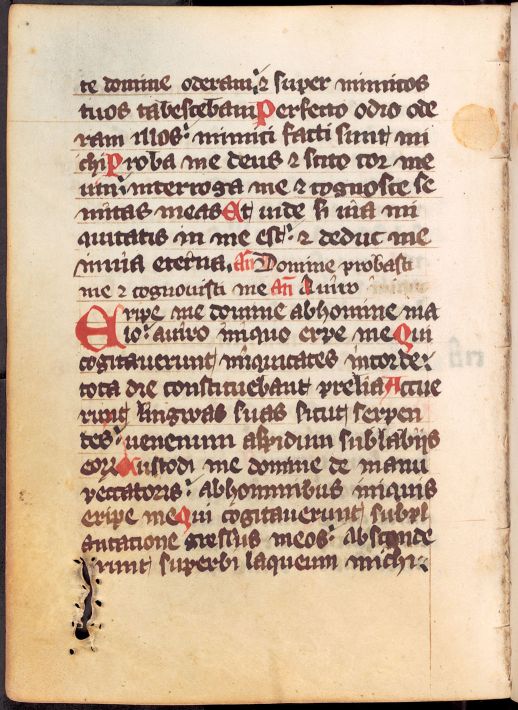 te domine oderam: ⁊ super inimicos
tuos tabescebam Perfecto odio ode
ram illos: inimici facti sunt mi
chi Proba me deus ⁊ scito cor me
um: interroga me ⁊ cognosce se
mitas meas Et uide si uia ini
quitatis in me est: ⁊ deduc me
in uia eterna. añ Domine probasti
me ⁊ cognouisti me añ A uiro
Eripe me domine ab homine ma
lo: a uiro iniquo eripe me Qui
cogitauerunt iniquitates in corde:
tota die constituebant prelia Accue
runt lingwas suas sicut serpen
tes: uenenum aspidum sub labijs
eorum Custodi me domine de manu
peccatoris: ab hominibus iniquis
eripe me Qui cogitauerunt subpl
antatione gressus meos: absconde
runt superbi laqueum michi: